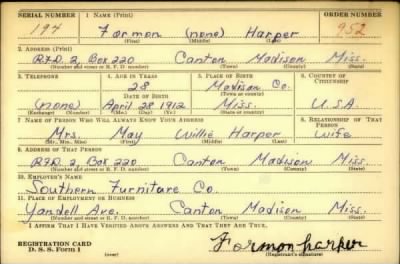 SERIAL NUMBER 1. NAME (Print) ORDER NUMBER
194 Formon (none) Harper 952
(First) (Middle) (Last)
2. ADDRESS (Print)
RFD. 2, Box 220 Canton Madison Miss.
(Number and street or R. F. D. number) (Town) (County) (State)
3. TELEPHONE 4. AGE IN YEARS 5. PLACE OF BIRTH 6. COUNTRY OF CITIZENSHIP
28 Madison Co.
DATE OF BIRTH (Town or county)
(none) April 28 1912 Miss. U.S.A
(Exchange) (Number) (Mo.) (Day) (Yr.) (State or country)
7. NAME OF PERSON WHO WILL ALWAYS KNOW YOUR ADDRESS 8. RELATIONSHIP OF THAT PERSON
Mrs. May Willie Harper Wife
(Mr., Mrs., Miss) (First) (Middle) (Last)
9. ADDRESS OF THAT PERSON
RFD. 2, Box 220 Canton Madison Miss.
(Number and street or R. F. D. number) (Town) (County) (State)
10. EMPLOYER'S NAME
Southern Furniture Co.
11. PLACE OF EMPLOYMENT OR BUSINESS
Yandell Ave. Canton Madison Miss.
(Number and street or R. F. D. number) (Town) (County) (State)
I AFFIRM THAT I HAVE VERIFIED ABOVE ANSWERS AND THAT THEY ARE TRUE.
REGISTRATION CARD Formon harper
D. S. S. Form 1 (over) (Registrant's signature)